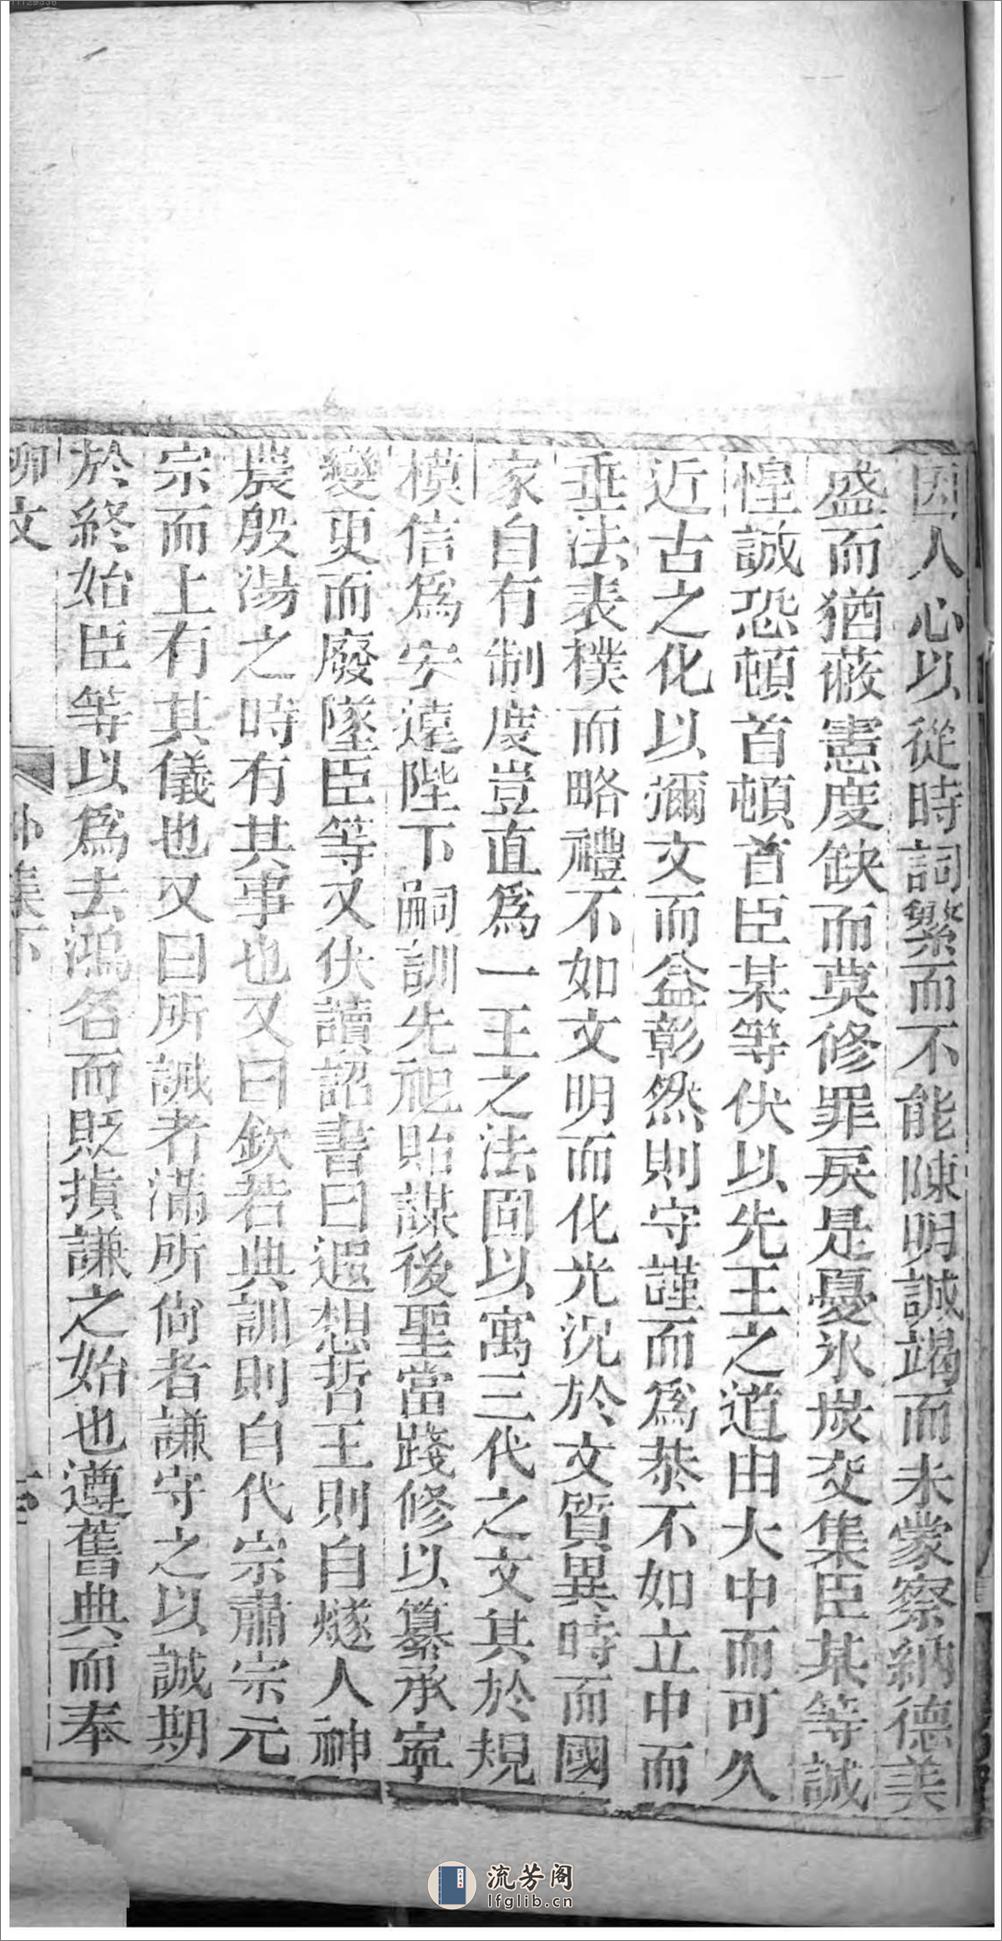 因人心以從時詞繁而不能陳明誠竭而未蒙察納德美
盛而猶蔽憲度缺而莫修罪戾是憂氷炭交集臣某等誠
惶誠恐頓首頓首臣某等伏以先王之道由大中而可久
近古之化以彌文而益彰然則守謹而爲恭不如立中而
垂法表樸而略禮不如文明而化光況於文質異時而國
家自有制度豈直爲一王之法固以寓三代之文其於規
模信爲宏遠陛下嗣訓先祀貽謀後聖當踐修以纂承寧
變更而廢墜臣等又伏讀詔書曰遐想哲王則自燧人神
農殷湯之時有其事也又曰欽若典訓則自代宗肅宗元
宗而上有其儀也又曰所誡者滿所尙者謙守之以誠期
於終始臣等以爲去鴻名而貶損謙之始也遵舊典而奉
柳文 外集下
流芳阁
lfglib.cn